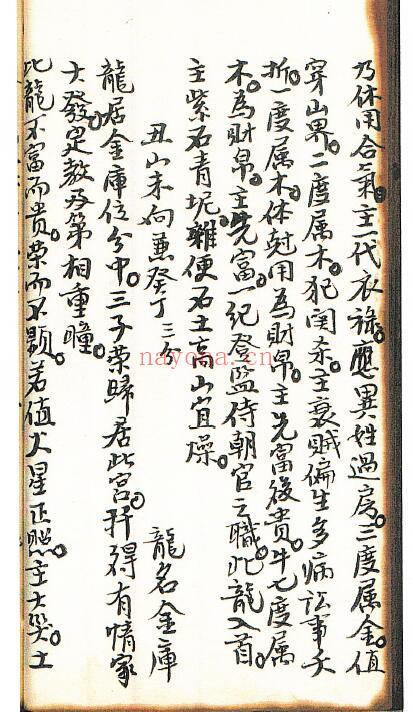 乃休用合氣。主一代衣祿。應異姓過房。三度属金。值
穿山界。二度属木。犯闰杀。主哀贼偏生多病訟事夭
折。一度属木体尅用為財帛。主先富後贵。牛七度属
木。為財帛。主先富一纪發监侍朝官之職。此龍入首
主紫石青坭。雜便石土高山宜燥。
丑山未向兼癸丁三分 龍名金庫
龍居金庫位分中。三子荣歸居此宫。扦得有情家
大發。定教及第相重瞳。
此龍不富而贵。荣而不顯。若值火星正照。主大災。土
nayona.cn